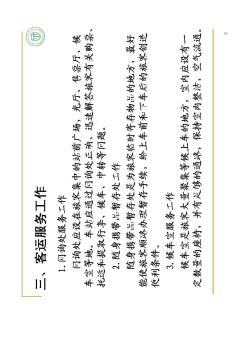 三、客运服务工作
1.问询处服务工作
问询处应设在旅客集中的站前广场，光厅、售票厅、候
车室等地。车站应通过问询处正确、迅速解答旅客有关购票、
托运和提取行李、候车、中转等问题。
2.随身携带品暂存处工作
随身携带品暂存处是为旅客临时寄存物品的地方，最好
能使旅客顺沐办理暂存手续，给上车前和下车后的旅客创造
便利条件。
3.候车室服务工作
候车室是旅客大量聚集等候上车的地方，室内应设有一
定数量的座椅，并有足够的通沐，保持室内整洁，空气流通。